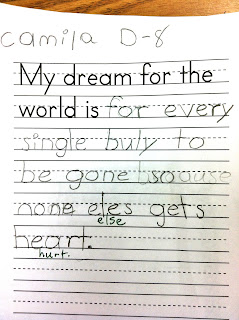 Camila D-8
My dream for the
world is for every
single buly to
be gone so cause
none eles gets
else
heart.
hurt.